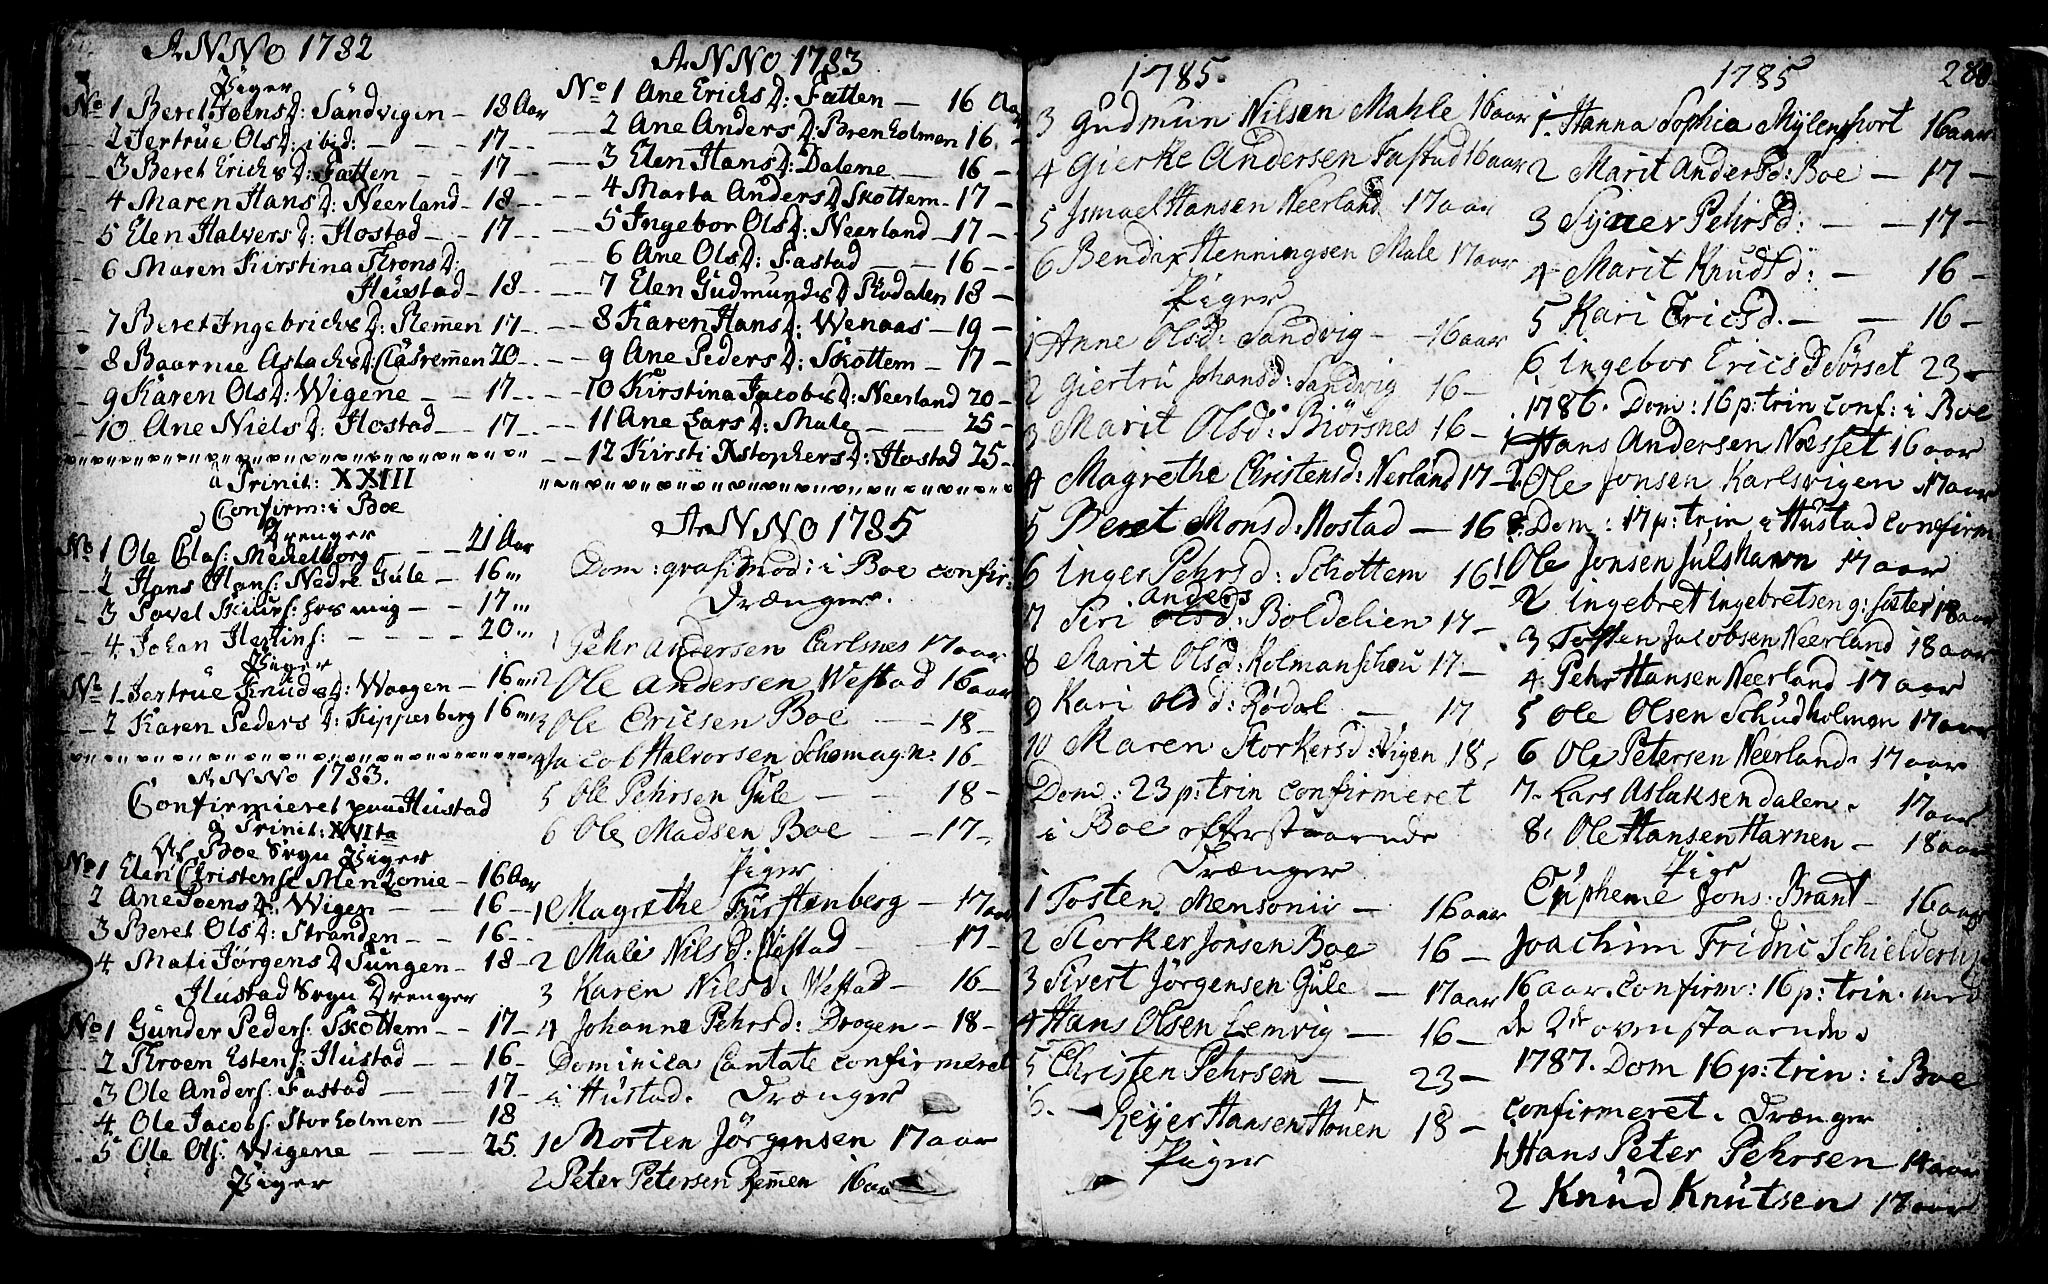 ANNO 1782
Piger
No 1 Beret JoensD: Sandvigen - 18 Aar
2 Jertrue OlsD: ibid: - 17 -
3 Beret ErichsD: Fatten - 17 -
4 Maren HansD: Neerland - 18 -
5 Elen HalversD: Hostad - 17 -
6 Maren Kirstina ThronsD:
Hustad - 18 -
7 Beret IngebrichsD: Remen 17 -
8 Baarnie AslachsD: Clasremen 20 -
9 Karen OlsD: Wigene - 17 -
10 Ane NielsD: Hostad - 17 -
a Trinit: XXIII
Confirm: i Boe
Drenger
No 1 Ole Olas: Medelborg - 21 Aar
2 Hans Hans: Nedre Gule - 16 "
3 Povel Knurs: hos mig - 17 "
4 Johan Hertins: - 20 "
Piger
No 1 Jertrue KnudsD: Waagen - 16 "
2 Karen PedersD: Kipperberg 16 "
ANNO 1783.
Confirmeret paa Hustad
a Trinit: XVIta
Af Boe Sogn Piger
No 1 Elen Christens: Menzonie - 16 Aar
2 Ane JoensD: Wigen - 16 -
3 Beret OlsD: Stranden - 16 -
4 Mali JörgensD Sungen - 18 -
Hustad Sogn Drenger
No 1 Gunder Peders: Skottem - 17 -
2 Throen Estens: Hustad - 16 -
3 Ole Anders: Fastad - 17 -
4 Ole Jacobs: Storholmen - 18
5 Ole Ols: Wigene - 25
Piger
ANNO 1783
No 1 Ane ErichsD: Fatten - 16 Aar
2 Ane AndersD: Brenholmen 16 -
3 Elen HansD: Dalene - 16 -
4 Marta AndersD Skottem - 17 -
5 Ingebor OlsD: Neerland - 17 -
6 Ane OlsD: Fastad - 16 -
7 Elen GudmundsD Skodalen 18 -
8 Karen HansD: Wenaas - 19 -
9 Ane PedersD: Skottem - 17 -
10 Kirstina JacobsD: Neerland 20 -
11 Ane LarsD: Male - 25 -
12 Kirsti XstophersD: Hostad 25 -
ANNO 1785
Dom: qvasimod: i Boe confir:
Drænger.
1 Pehr Andersen Carlsnes 17 aar
2 Ole Andersen Westad 16 aar
3 Ole Ericsen Boe - 18 -
4 Jacob Halvorsen Schomag:n: 16 -
5 Ole Pehrsen Gule - 18 -
6 Ole Madsen Boe - 17 -
Piger
1 Magrethe Furstenberg - 17 aar
2 Mali Nilsd: Westad - 17 -
3 Karen Nilsd. Westad - 16 -
4 Johanne Pehrsd: Drogen - 18 -
Dominica Cantate confirmeret
i Hustad. Drænger
1 Morten Jörgensen 17 aar
2 Peter Petersen Remen 16 aar
1785.
3 Gudmun Nilsen Mahle 16 aar
4 Gierke Andersen Fastad 16 aar
5 Ismael Hansen Neerland 17 aar
6 Bendix Henningsen Male 17 aar
Piger
1 Anne Olsd: Sandvig - 16 aar
2 Giertru Johansd: Sandvig 16 -
3 Marit Olsd: Biörsnes 16 -
4 Magrethe Christensd: Nerland 17 -
5 Beret Monsd: Hostad - 16
6 Inger Pehrsd: Schottem 16
anders
7 Siri olsd: Boldelien 17 -
8 Marit Olsd: Kolmanschou 17 -
9 Kari Olsd: Rödal - 17
10 Maren Storkersd: Vigen 18 -
Dom: 23 p: trin confirmeret
i Boe efterstaaende
Drænger
1 Tosten Mensonii - 16 aar
2 Storker Jonsen Boe 16 -
3 Sivert Jörgensen Gule - 17 aar
4 Hans Olsen Lemvig - 16 -
5 Christen Pehrsen - 23 -
6. - Reijer Hansen Houen 18 -
Piger
1785 280
1. Hanna Sophia Mylenphort 16 aar
2 Marit Andersd: Boe - 17 -
3 Synev Pehrsd: - 17 -
4 Marit Knudsd: - 16 -
5 Kari Ericsd. - 16 -
6 Ingebor Ericsd Sörset 23 -
1786. Dom: 16 p: trin conf: i Boe
1 Hans Andersen Næsset 16 aar
2. Ole Jonsen Karlsvigen 17 aar
Dom: 17 p: trin i Hustad confirm
1 Ole Jonsen Julshavn 17 aar
2 Ingebret Ingebretsen g: soster 18 aar
3 Tosten Jacobsen Neerland 18 aar
4. Pehr Hansen Neerland 17 aar
5 Ole Olsen Schudholmen 17 aar
6 Ole Petersen Neerland. 17 aar
7. Lars Aslaksen dalen. 17 aar
8. Ole Hansen Harnen - 18 aar
Pige
Epheme Jons: Brant - 16 aar
Joachim Fridric Schielderup
16 aar. confirm: 16 p: trin. med
de 2de ovenstaaende.
1787. Dom 16 p: trin: i Boe
confirmeret. Drænger
1 Hans Peter Pehrsen 14 aar
2 Knud Knutsen 17 aar